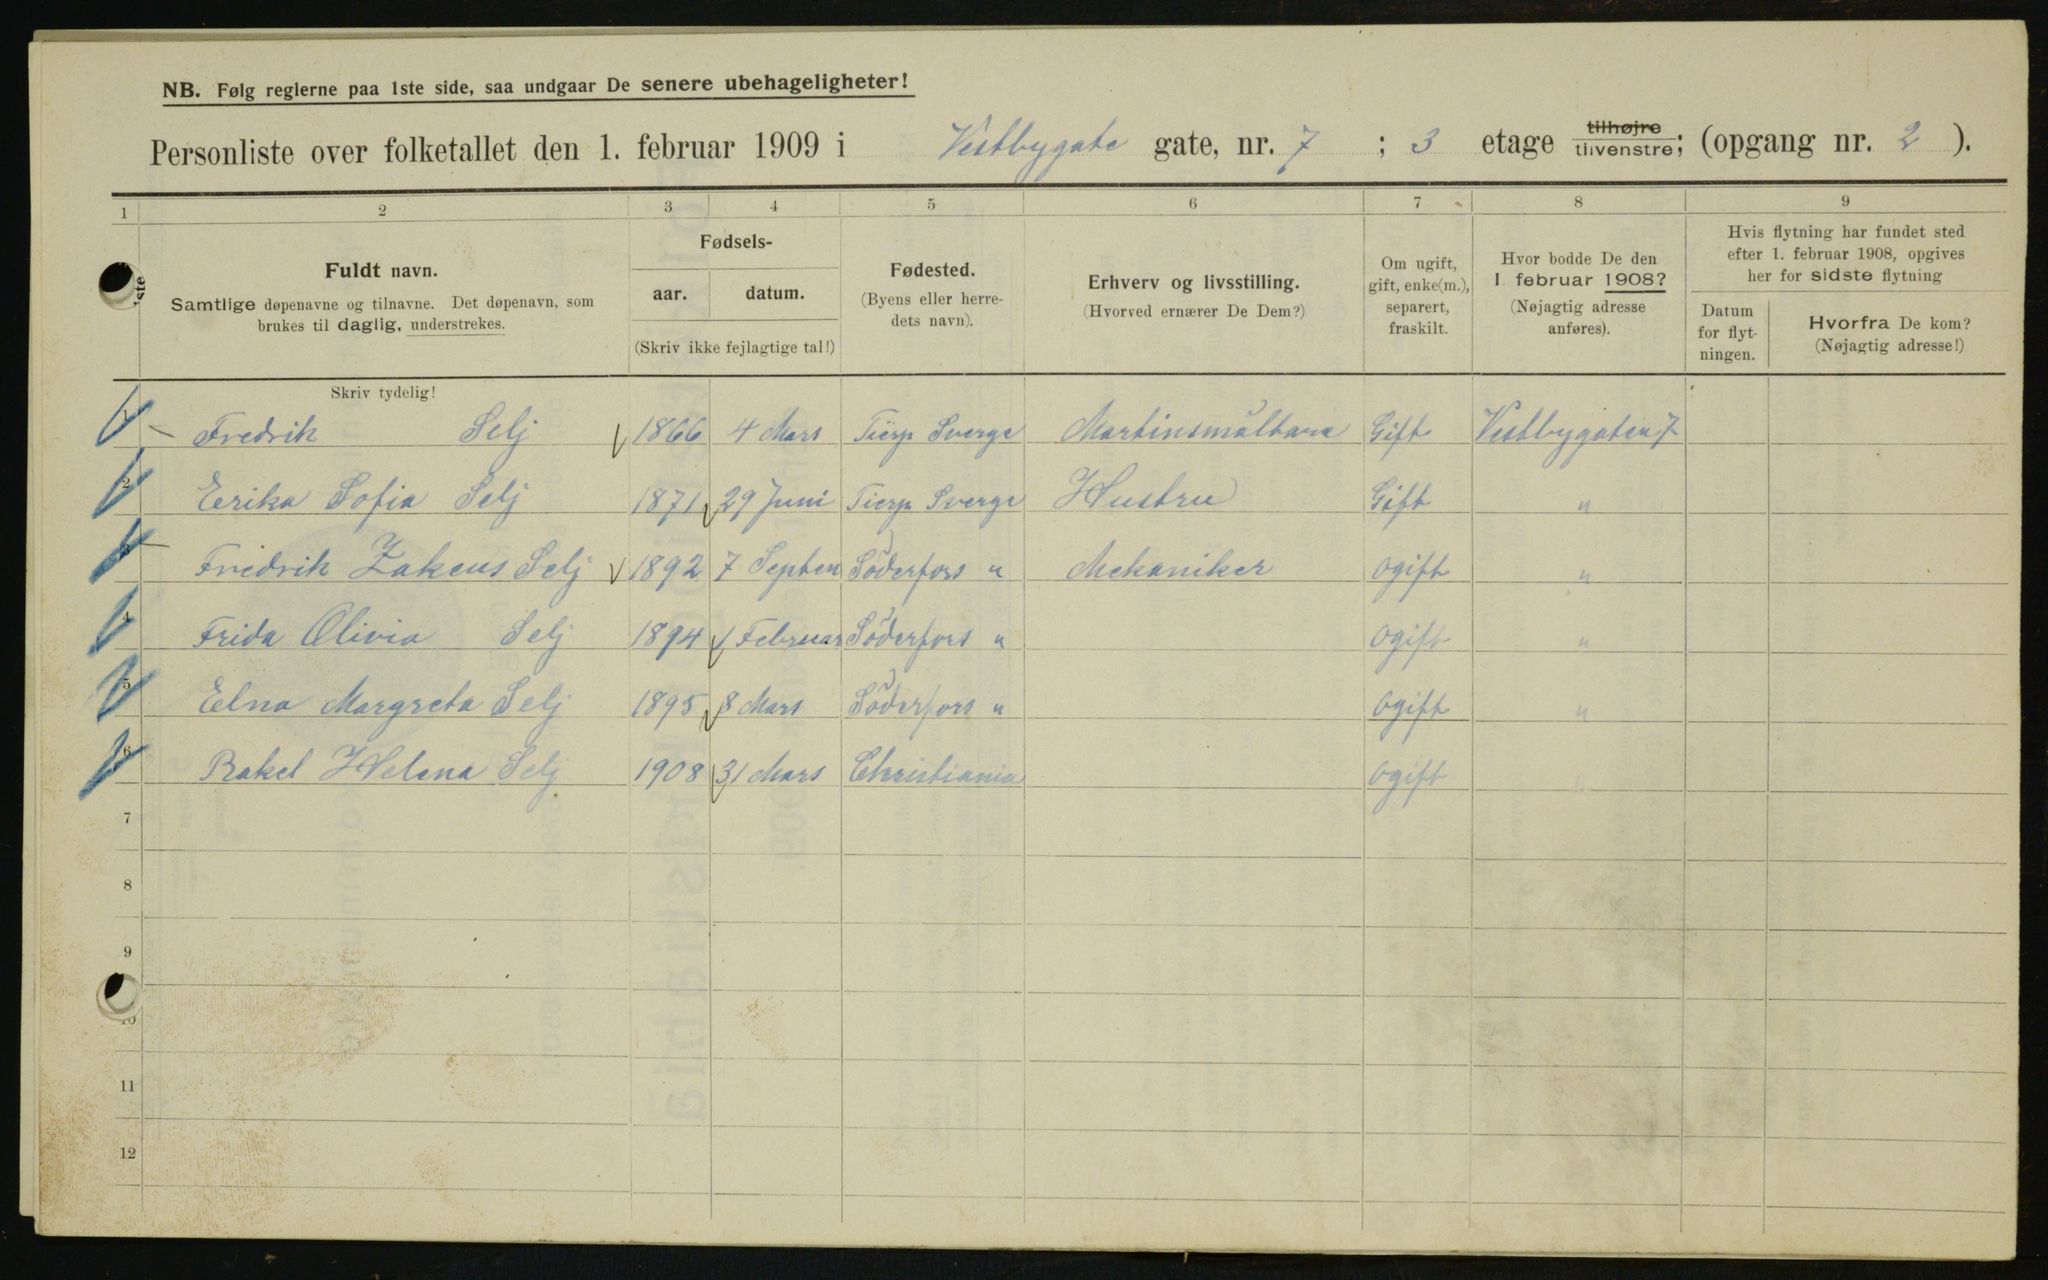 NB. Følg reglerne paa 1ste side, saa undgaar De senere ubehageligheter!
Personliste over folketallet den 1. februar 1909 i Vestbygate gate, nr. 7 ; 3 etage tilhøjre tilvenstre; (opgang nr. 2 ).
1 2 3 4 5 6 7 8 9
Fuldt navn.
Samtlige døpenavne og tilnavne. Det døpenavn, som
brukes til daglig, understrekes.
Skriv tydelig!
Fødsels-
aar. datum.
(Skriv ikke fejlagtige tal!)
Fødested.
(Byens eller herre-
dets navn).
Erhverv og livsstilling.
(Hvorved ernærer De Dem?)
Om ugift,
gift, enke(m.),
separert,
fraskilt.
Hvor bodde De den
1 februar 1908?
(Nøjagtig adresse
anføres).
Hvis flytning har fundet sted
efter 1. februar 1908, opgives
her for sidste flytning
Datum
for flyt-
ningen.
Hvorfra De kom?
(Nøjagtig adresse!)
1 Fredrik Selj 1866 4 Mars Tierp Sverge Martinsmältare Gift Vestbygaten 7
2 Erika Sofia Selj 1871 29 Juni Tierp Sverge Hustru Gift "
3 Fredrik Zakeus Selj 1892 7 Septen Söderfors " Mekaniker Ogift "
4 Frida Olivia Selj 1894 1 Februar Söderfors " Ogift "
5 Elna Margreta Selj 1895 8 Mars Söderfors " Ogift "
6 Rakel Helena Selj 1908 31 Mars Christiania Ogift "
7
8
9
10
11
12